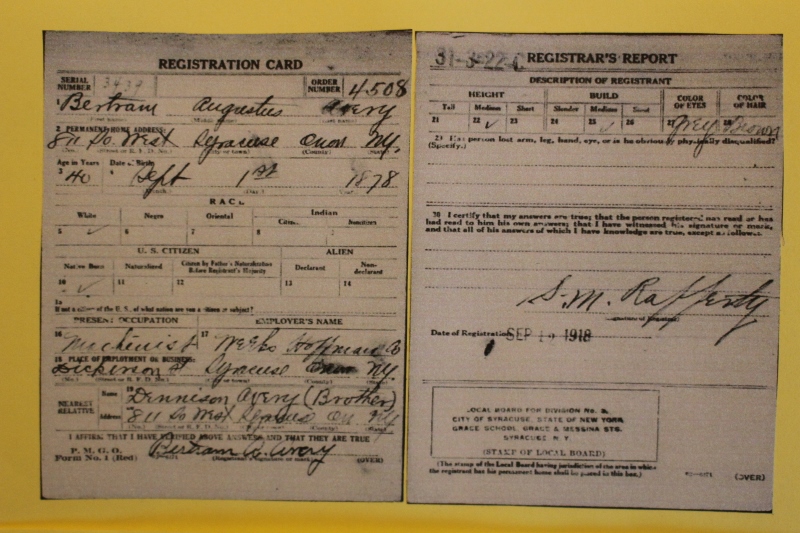 REGISTRATION CARD
SERIAL NUMBER 3439 ORDER NUMBER 4508
1 Bertram Augustus Avery
2 PERMANENT HOME ADDRESS:
811 So. West Syracuse Onon N.Y.
(No.) (Street or R. F. D. No.) (City or town) (County) (State)
Age in Years Date of Birth
3 40 4 Sept 1st 1878
(Month.) (Day.) (Year.)
RACE
White Negro Oriental Indian
Citizen Noncitizen
5 ✓ 6 7 8
U. S. CITIZEN ALIEN
Native Born Naturalized Citizen by Father's Naturalization Before Registrant's Majority Declarant Non-declarant
10 ✓ 11 12 13 14
15
If not a citizen of the U. S., of what nation are you a citizen or subject?
PRESENT OCCUPATION EMPLOYER'S NAME
16 Machinist 17 Weeks Hoffman Co
18 PLACE OF EMPLOYMENT OR BUSINESS:
Dickerson St Syracuse Onon N.Y.
(No.) (Street or R. F. D. No.) (City or town) (County) (State)
NEAREST RELATIVE Name 19 Dennison Avery (Brother)
Address 811 So West Syracuse On N.Y.
(No.) (Street or R. F. D. No.) (City or town) (County) (State)
I AFFIRM THAT I HAVE VERIFIED ABOVE ANSWERS AND THAT THEY ARE TRUE
P. M. G. O.
Form No. 1 (Red) Bertram A. Avery
(Registrant's signature or mark) (OVER)
31-3-22-C REGISTRAR'S REPORT
DESCRIPTION OF REGISTRANT
HEIGHT BUILD COLOR OF EYES COLOR OF HAIR
Tall Medium Short Slender Medium Stout
21 22 ✓ 23 24 25 ✓ 26 27 Grey 28 Brown
29 Has person lost arm, leg, hand, eye, or is he obviously physically disqualified?
(Specify.)
30 I certify that my answers are true; that the person registered has read or has
had read to him his own answers; that I have witnessed his signature or mark,
and that all of his answers of which I have knowledge are true, except as follows:
S. M. Rafferty
(Signature of Registrar)
Date of Registration SEP 12 1918
LOCAL BOARD FOR DIVISION No. 3,
CITY OF SYRACUSE, STATE OF NEW YORK,
GRACE SCHOOL, GRACE & MESSINA STS.
SYRACUSE N. Y.
(STAMP OF LOCAL BOARD)
(The stamp of the Local Board having jurisdiction of the area in which
the registrant has his permanent home shall be placed in this box.)
(OVER)